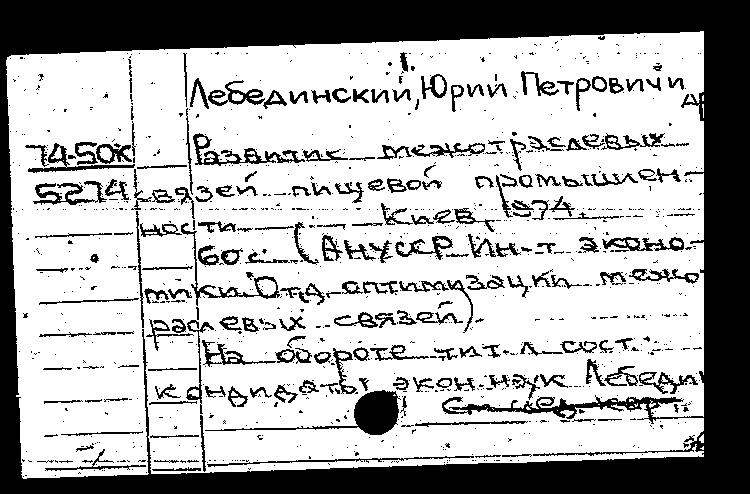 1.
Лебединский, Юрий Петрович и
др
74-50к
Развитие межотраслевых
5274
связей пищевой промышлен-
ности Киев, 1974.
60 с. (АН УССР Ин-т эконо-
мики. Отд. оптимизации межо
раслевых связей).
На обороте тит. л. сост.:
кандидаты экон. наук Лебедин
См. след. кар